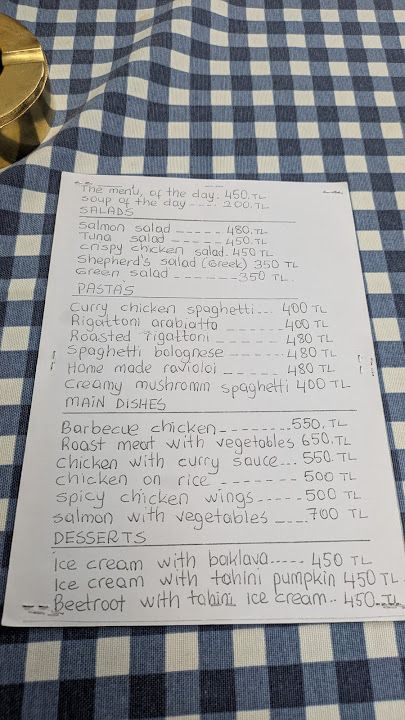 The menu, of the day. 450.TL
soup of the day ---- 200.TL
SALADS
Salmon salad ----- 480.TL
Tuna salad ----- 450.TL
crispy chicken salad. 450 TL
Shepherd's salad (Greek) 350 TL
Green salad ------- 350 TL.
PASTAS
Curry chicken spaghetti... 400 TL
Rigattoni arabiatta ------ 400 TL
Roasted rigattoni ------ 480 TL
Spaghetti bolognese ----- 480 TL
Home made ravioloi ------ 480 TL
Creamy mushromm spaghetti 400 TL
MAIN DISHES
Barbecue chicken -------- 550.TL
Roast meat with vegetables 650.TL
chicken with curry sauce... 550 TL
chicken on rice ------- 500 TL
spicy chicken wings ----- 500 TL
salmon with vegetables ---- 700 TL
DESSERTS
Ice cream with baklava----- 450 TL
Ice cream with tahini pumpkin 450 TL
Beetroot with tahini ice cream.. 450.TL